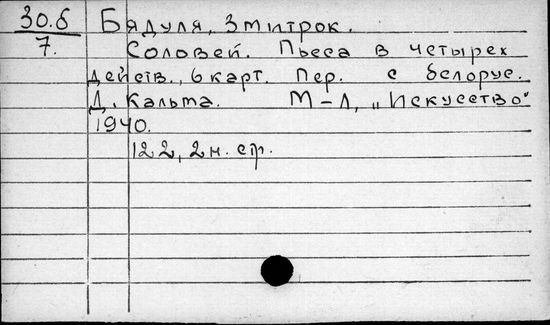 30.б
7.
Бядуля, Змитрок.
Соловей. Пьеса в четырех
действ., 6 карт. Пер. с белорус.
Д. Кальма. М-Л, „Искусство"
1940.
122, 2 н. стр.